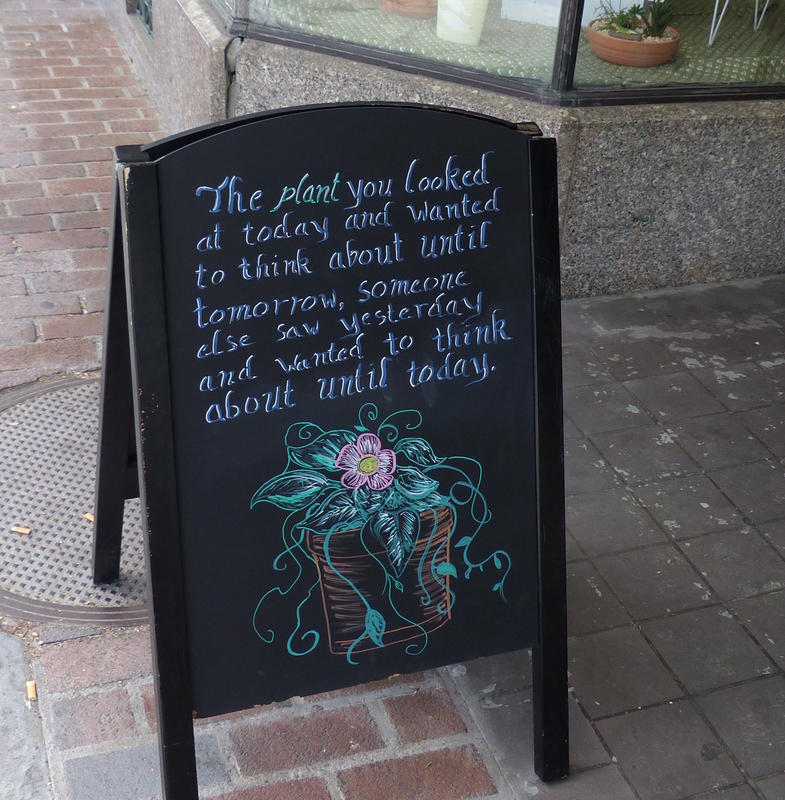 The plant you looked
at today and wanted
to think about until
tomorrow, someone
else saw yesterday
and wanted to think
about until today.